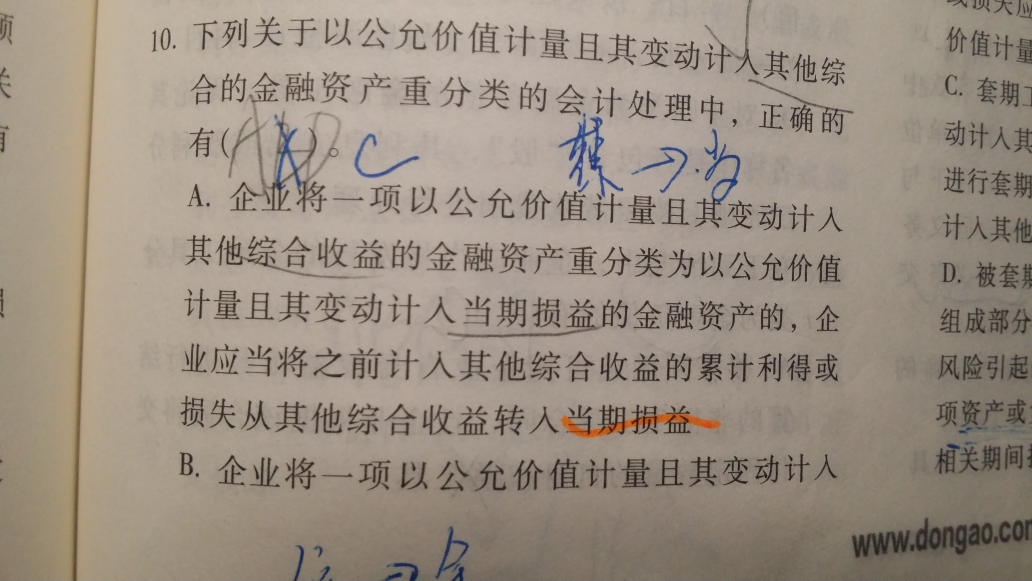 10. 下列关于以公允价值计量且其变动计入其他综
合的金融资产重分类的会计处理中，正确的
有( )。 C 综→当
A. 企业将一项以公允价值计量且其变动计入
其他综合收益的金融资产重分类为以公允价值
计量且其变动计入当期损益的金融资产的，企
业应当将之前计入其他综合收益的累计利得或
损失从其他综合收益转入当期损益
B. 企业将一项以公允价值计量且其变动计入
价值计量
C. 套期
动计入其
进行套期
计入其他
D. 被套期
组成部分
风险引起
项资产或
相关期间
www.dongao.com